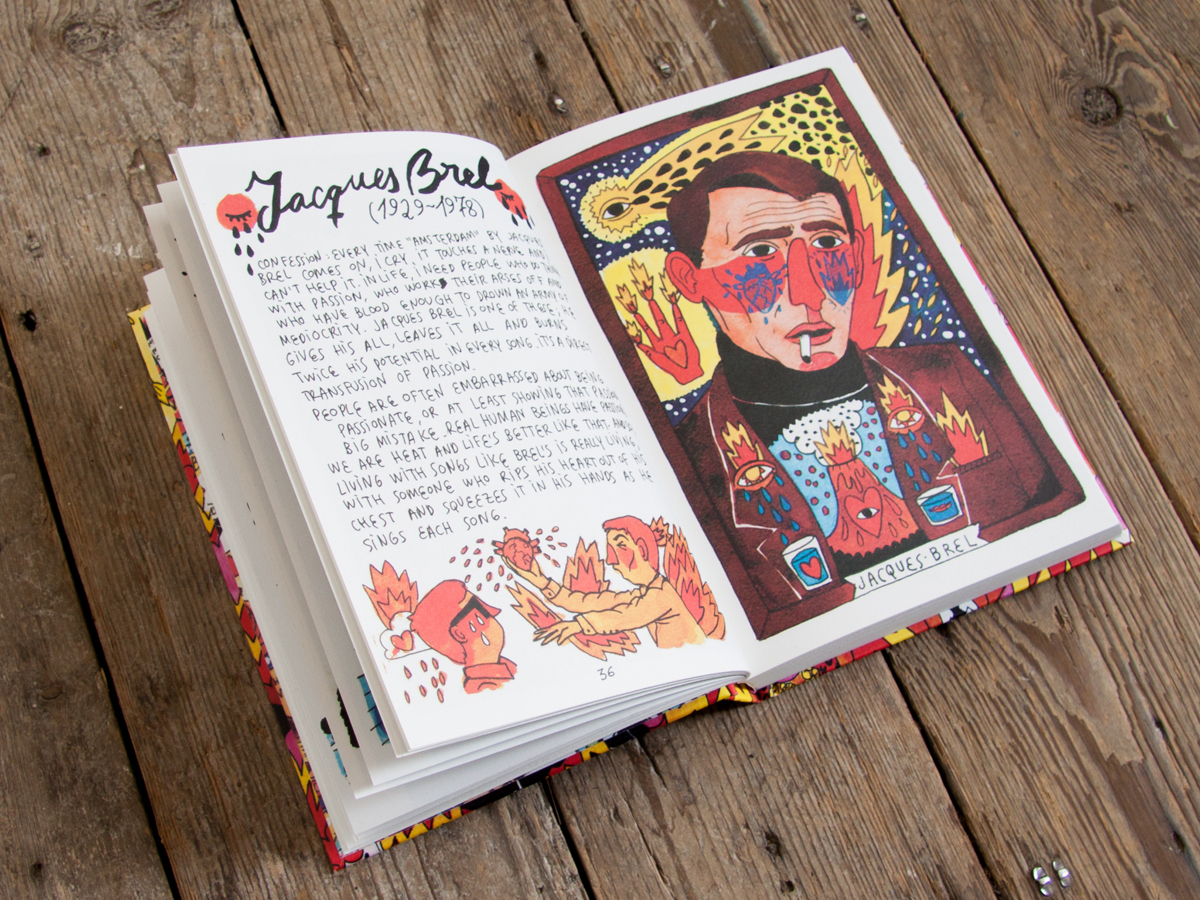 Jacques Brel
(1929~1978)
CONFESSION: EVERY TIME "AMSTERDAM" BY JACQUES
BREL COMES ON, I CRY. IT TOUCHES A NERVE AND I
CAN'T HELP IT. IN LIFE, I NEED PEOPLE WHO DO THINGS
WITH PASSION, WHO WORK THEIR ARSES OFF AND
WHO HAVE BLOOD ENOUGH TO DROWN AN ARMY OF
MEDIOCRITY. JACQUES BREL IS ONE OF THESE, HE
GIVES HIS ALL, LEAVES IT ALL AND BURNS
TWICE HIS POTENTIAL IN EVERY SONG. IT'S A DIRECT
TRANSFUSION OF PASSION.
PEOPLE ARE OFTEN EMBARRASSED ABOUT BEING
PASSIONATE, OR AT LEAST SHOWING THAT PASSION.
BIG MISTAKE. REAL HUMAN BEINGS HAVE PASSION.
WE ARE HEAT AND LIFE'S BETTER LIKE THAT. AND
LIVING WITH SONGS LIKE BREL'S IS REALLY LIVING,
WITH SOMEONE WHO RIPS HIS HEART OUT OF HIS
CHEST AND SQUEEZES IT IN HIS HANDS AS HE
SINGS EACH SONG.
36
JACQUES·BREL